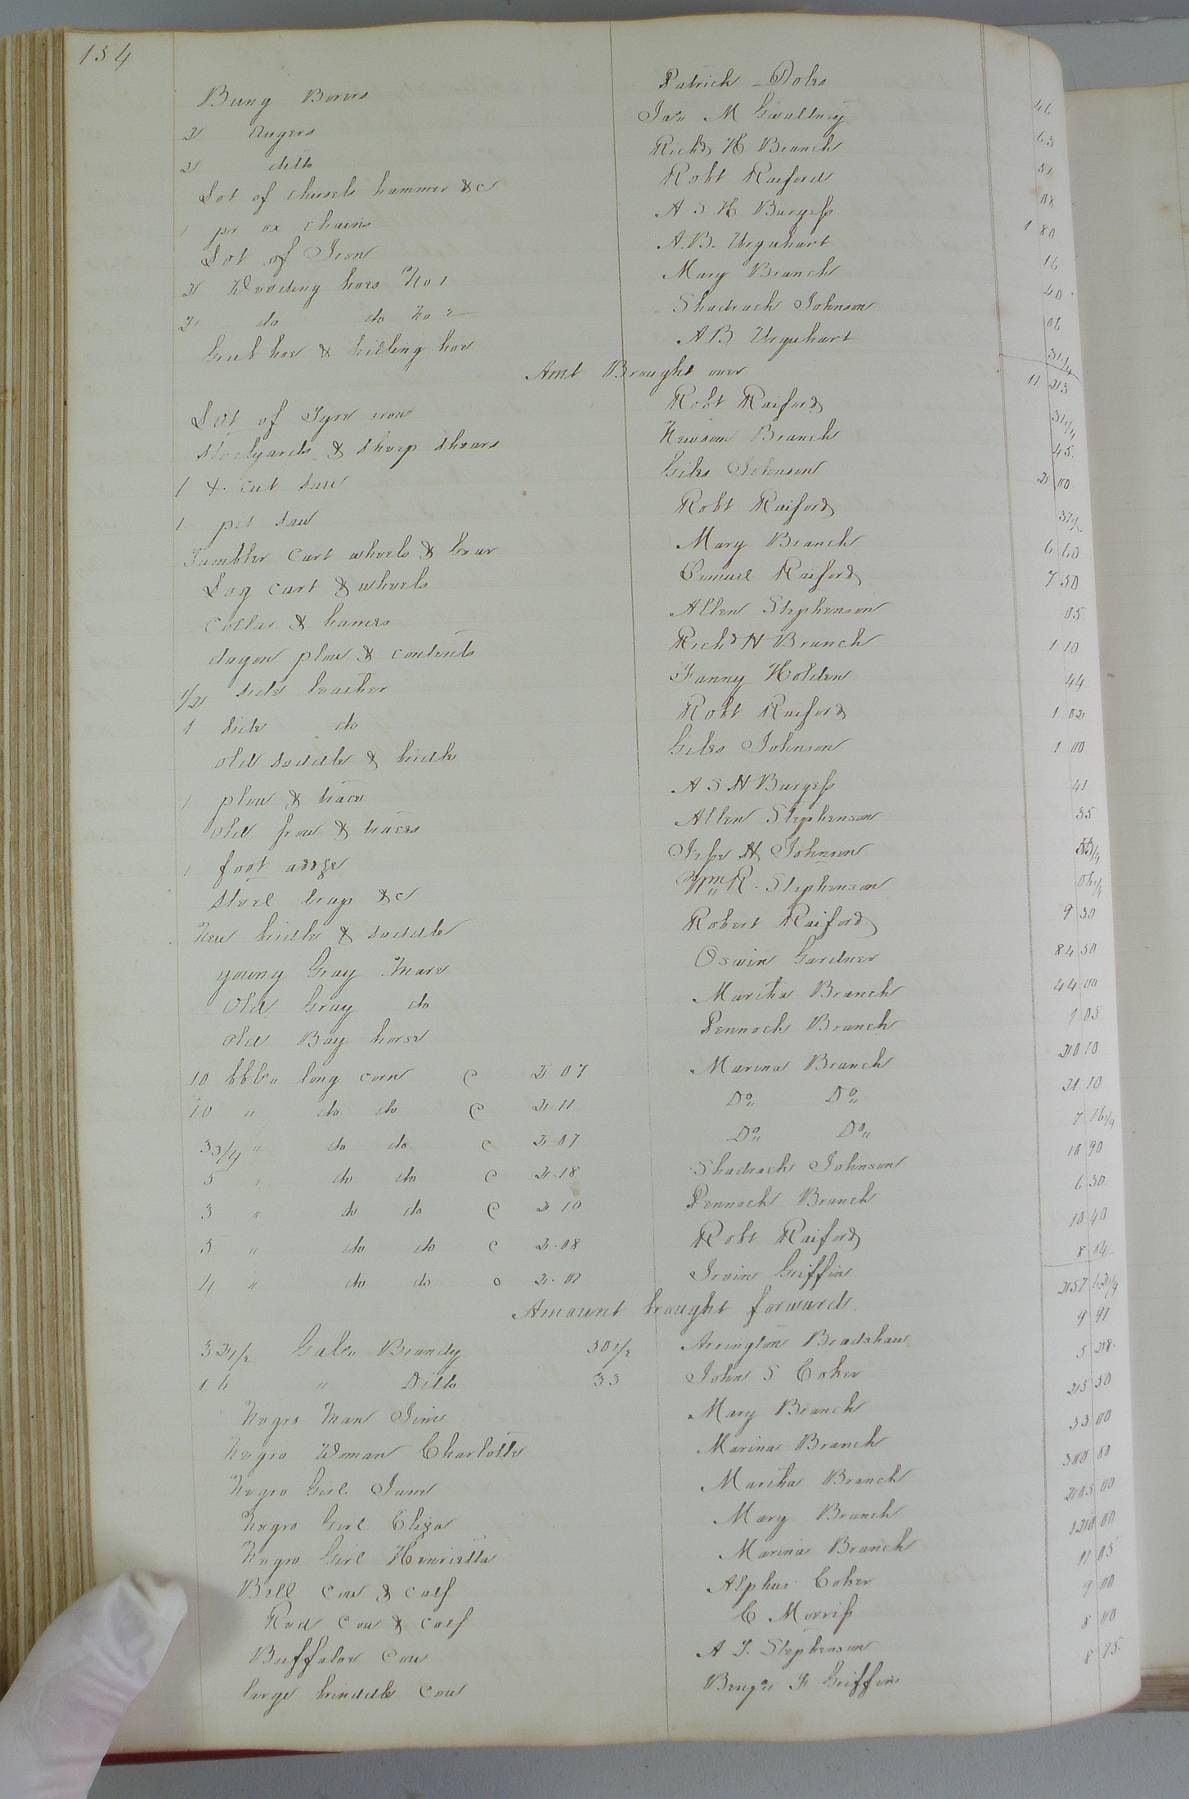 134
Bung Borers Patrick Doles 46
2 Augers Jas. M Gwaltney 63
2 ditto Richd H Branch 51
Lot of chisels hammer &c Robt Raiford 08
1 pr ox chains A S H Burgess 1 80
Lot of Iron A. B. Urquhart 16
2 Weeding hoes No 1 Mary Branch 40
2 do do No 2 Shadrach Johnson 06
Grub hoe & hilling hoe A B Urquhart 31 1/4
Amt Brought over 11 23
Lot of Tyre iron Robt Raiford 31 1/4
Steelyards & Sheep Shears Newsom Branch 45
1 + cut Saw Giles Johnson 2 00
1 pit Saw Robt Raiford 37 1/2
Tumbler Cart wheels & gear Mary Branch 6 60
Log cart & wheels Lemuel Raiford 7 50
Collar & hames Allen Stephenson 05
dagon plow & contents Richd H Branch 1 10
1/2 Side leather Fanny Holden 44
1 Side do Robt Raiford 1 02
Old Saddle & bridle Giles Johnson 1 00
1 plow & traces A S H Burgess 41
Old & traces Allen Stephenson 35
1 foot adze Jesse H Johnson
Steel trap &c Wm R. Stephenson 06 1/4
New bridle & Saddle Robert Raiford 9 50
Young Gray Mare Oswin Gardner 84 50
Old Gray do Martha Branch 44 00
Old Bay horse Pennock Branch 1 05
10 bbls. long corn @ 2 07 Marina Branch 20 70
10 " do do @ 2.11 Do Do 21 10
3 3/4 " do do @ 2.07 Do Do 7 76 1/4
5 " do do @ 2.18 Shadrach Johnson 10 90
3 " do do @ 2 10 Pennock Branch 6 30
5 " do do @ 2.08 Robt Raiford 10 40
4 " do do @ 2.01 Irvin Griffin 8 04
Amount brought forward 257 62 1/4
32 1/2 Gals. Brandy 30 1/2 Arrington Bradshaw 9 91
16 " Ditto 33 John S Coker 5 28
Negro Man Jim Mary Branch 50
Negro Woman Charlotte Marina Branch 33 00
Negro Girl Martha Branch 300 80
Negro Girl Eliza Mary Branch 205 00
Negro Girl Henrietta Marina Branch 00
Bell Cow & calf Alphus Coker 11 05
Red Cow & calf C Morriss 9 00
Buffalow Cow A J. Stephenson 8 00
large brinddle Cow Benjn F Griffin 8 75